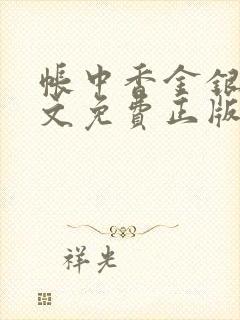 帐中香金银
文免費正版
祥光